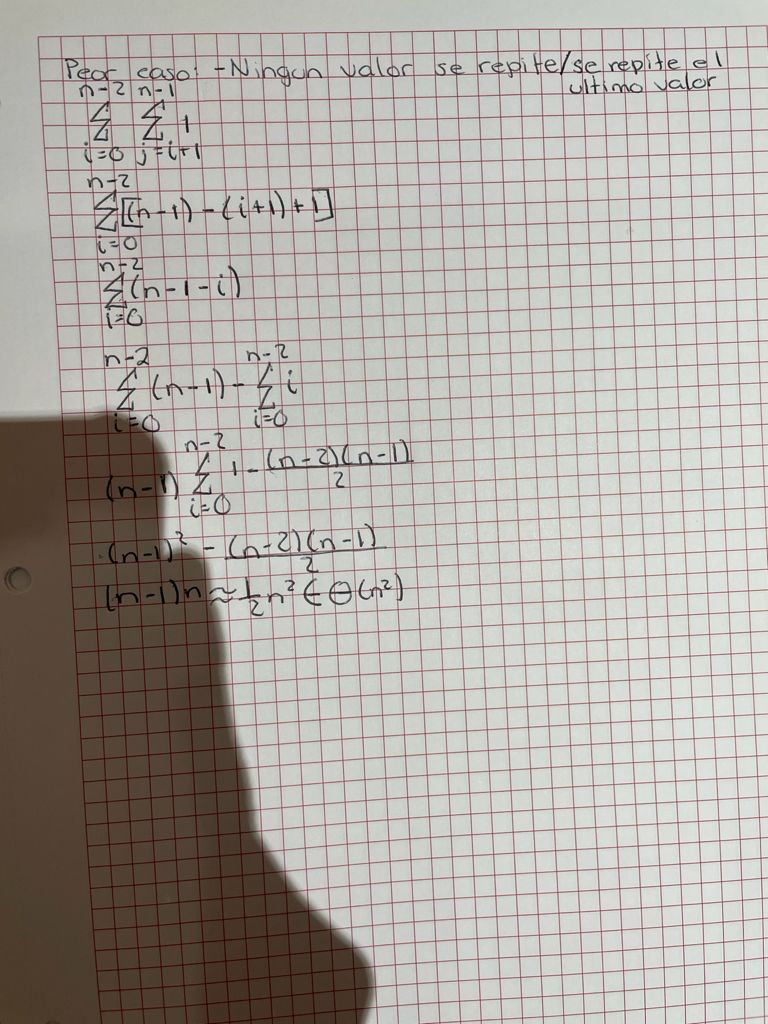 Peor caso: -Ningun valor se repite/se repite el
ultimo valor
n-2 n-1
∑ ∑ 1
i=0 j=i+1
n-2
∑[(n-1)-(i+1)+1]
i=0
n-2
∑(n-1-i)
i=0
n-2 n-2
∑(n-1)-∑i
i=0 i=0
n-2
(n-1) ∑ 1-(n-2)(n-1)
2
i=0
(n-1)² - (n-2)(n-1)
2
(n-1)n≈½n²∈Θ(n²)